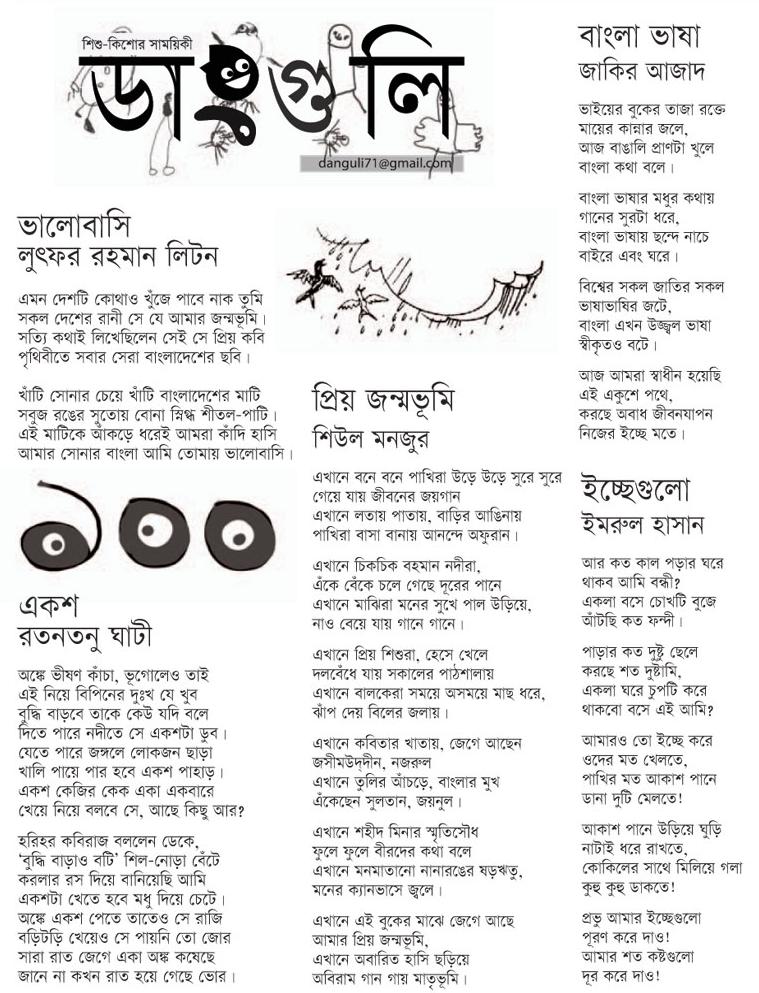 শিশু-কিশোর সাময়িকী
ডাংগুলি
danguli71@gmail.com
ভালোবাসি
লুৎফর রহমান লিটন
এমন দেশটি কোথাও খুঁজে পাবে নাক তুমি
সকল দেশের রানী সে যে আমার জন্মভূমি।
সত্যি কথাই লিখেছিলেন সেই সে প্রিয় কবি
পৃথিবীতে সবার সেরা বাংলাদেশের ছবি।
খাঁটি সোনার চেয়ে খাঁটি বাংলাদেশের মাটি
সবুজ রঙের সুতোয় বোনা স্নিগ্ধ শীতল-পাটি।
এই মাটিকে আঁকড়ে ধরেই আমরা কাঁদি হাসি
আমার সোনার বাংলা আমি তোমায় ভালোবাসি।
১০০
একশ
রতনতনু ঘাটী
অঙ্কে ভীষণ কাঁচা, ভূগোলেও তাই
এই নিয়ে বিপিনের দুঃখ যে খুব
বুদ্ধি বাড়বে তাকে কেউ যদি বলে
দিতে পারে নদীতে সে একশটা ডুব।
যেতে পারে জঙ্গলে লোকজন ছাড়া
খালি পায়ে পার হবে একশ পাহাড়।
একশ কেজির কেক একা একবারে
খেয়ে নিয়ে বলবে সে, আছে কিছু আর?
হরিহর কবিরাজ বললেন ডেকে,
‘বুদ্ধি বাড়াও বটি’ শিল-নোড়া বেঁটে
করলার রস দিয়ে বানিয়েছি আমি
একশটা খেতে হবে মধু দিয়ে চেটে।
অঙ্কে একশ পেতে তাতেও সে রাজি
বড়িটড়ি খেয়েও সে পায়নি তো জোর
সারা রাত জেগে একা অঙ্ক কষেছে
জানে না কখন রাত হয়ে গেছে ভোর।
প্রিয় জন্মভূমি
শিউল মনজুর
এখানে বনে বনে পাখিরা উড়ে উড়ে সুরে সুরে
গেয়ে যায় জীবনের জয়গান
এখানে লতায় পাতায়, বাড়ির আঙিনায়
পাখিরা বাসা বানায় আনন্দে অফুরান।
এখানে চিকচিক বহমান নদীরা,
এঁকে বেঁকে চলে গেছে দূরের পানে
এখানে মাঝিরা মনের সুখে পাল উড়িয়ে,
নাও বেয়ে যায় গানে গানে।
এখানে প্রিয় শিশুরা, হেসে খেলে
দলবেঁধে যায় সকালের পাঠশালায়
এখানে বালকেরা সময়ে অসময়ে মাছ ধরে,
ঝাঁপ দেয় বিলের জলায়।
এখানে কবিতার খাতায়, জেগে আছেন
জসীমউদ্‌দীন, নজরুল
এখানে তুলির আঁচড়ে, বাংলার মুখ
এঁকেছেন সুলতান, জয়নুল।
এখানে শহীদ মিনার স্মৃতিসৌধ
ফুলে ফুলে বীরদের কথা বলে
এখানে মনমাতানো নানারঙের ষড়ঋতু,
মনের ক্যানভাসে জ্বলে।
এখানে এই বুকের মাঝে জেগে আছে
আমার প্রিয় জন্মভূমি,
এখানে অবারিত হাসি ছড়িয়ে
অবিরাম গান গায় মাতৃভূমি।
বাংলা ভাষা
জাকির আজাদ
ভাইয়ের বুকের তাজা রক্তে
মায়ের কান্নার জলে,
আজ বাঙালি প্রাণটা খুলে
বাংলা কথা বলে।
বাংলা ভাষার মধুর কথায়
গানের সুরটা ধরে,
বাংলা ভাষায় ছন্দে নাচে
বাইরে এবং ঘরে।
বিশ্বের সকল জাতির সকল
ভাষাভাষির জটে,
বাংলা এখন উজ্জ্বল ভাষা
স্বীকৃতও বটে।
আজ আমরা স্বাধীন হয়েছি
এই একুশে পথে,
করছে অবাধ জীবনযাপন
নিজের ইচ্ছে মতে।
ইচ্ছেগুলো
ইমরুল হাসান
আর কত কাল পড়ার ঘরে
থাকব আমি বন্ধী?
একলা বসে চোখটি বুজে
আঁটছি কত ফন্দী।
পাড়ার কত দুষ্টু ছেলে
করছে শত দুষ্টামি,
একলা ঘরে চুপটি করে
থাকবো বসে এই আমি?
আমারও তো ইচ্ছে করে
ওদের মত খেলতে,
পাখির মত আকাশ পানে
ডানা দুটি মেলতে!
আকাশ পানে উড়িয়ে ঘুড়ি
নাটাই ধরে রাখতে,
কোকিলের সাথে মিলিয়ে গলা
কুহু কুহু ডাকতে!
প্রভু আমার ইচ্ছেগুলো
পূরণ করে দাও!
আমার শত কষ্টগুলো
দূর করে দাও!